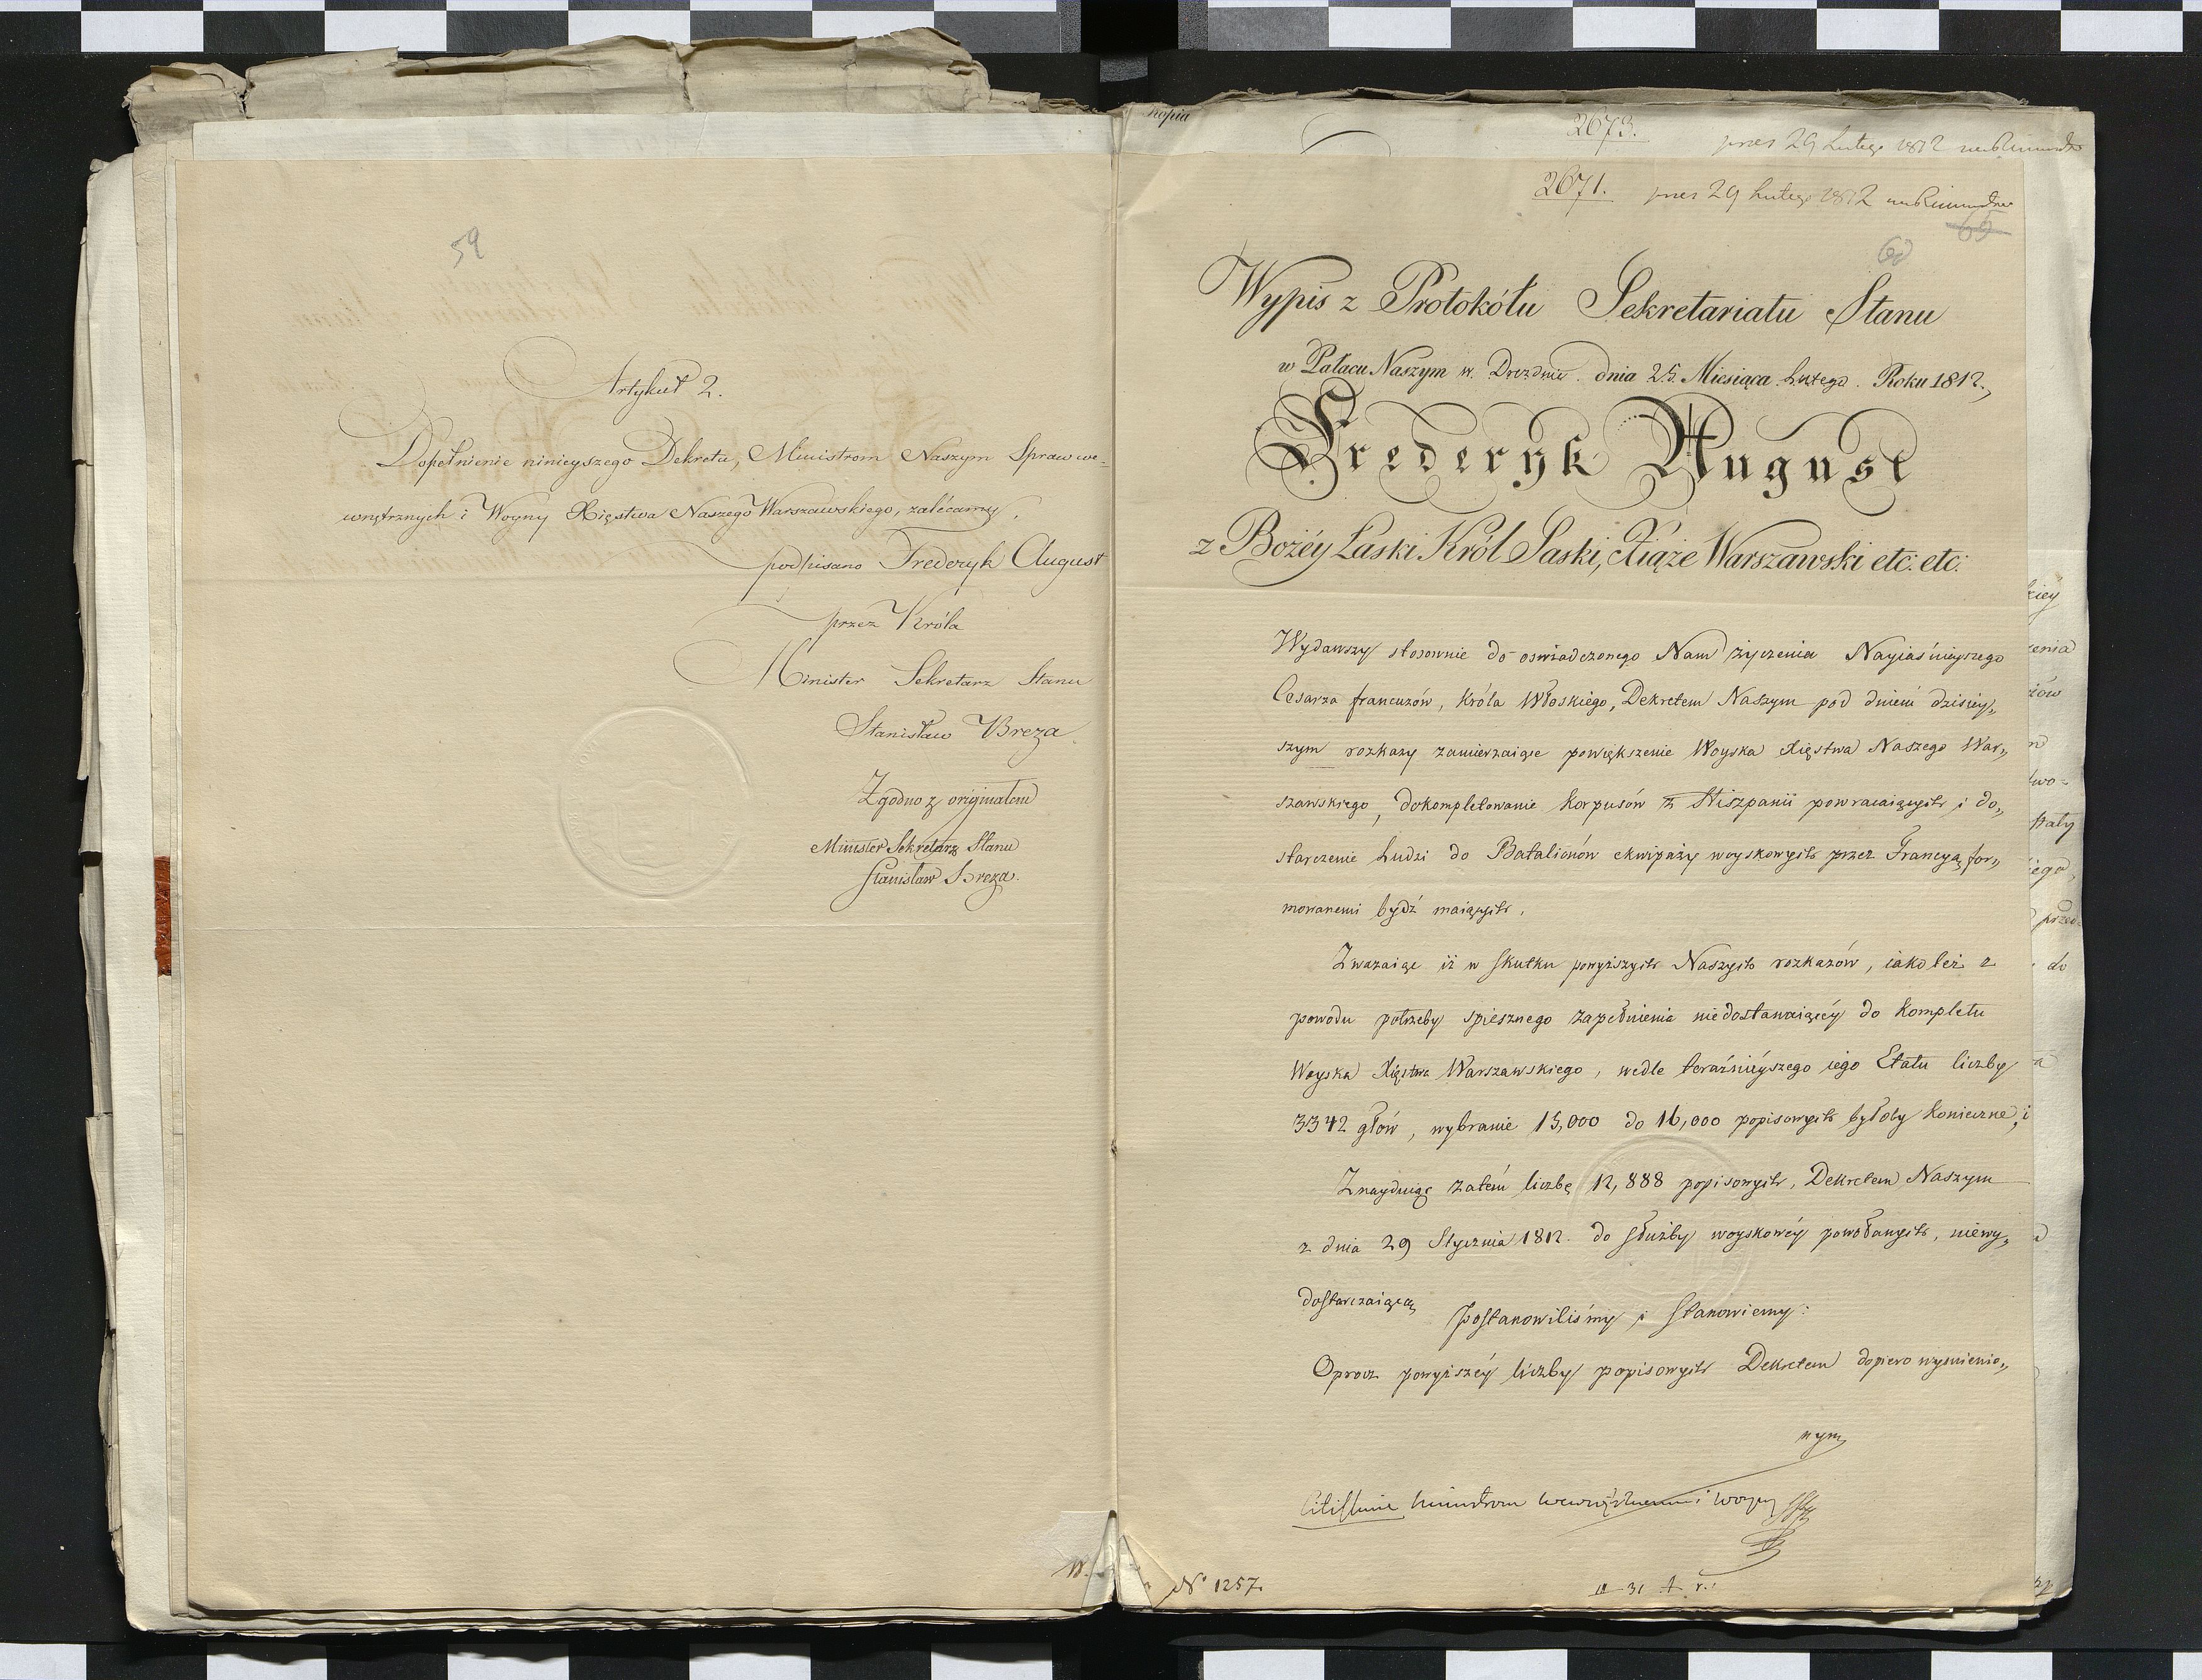 59
Artykuł 2.
Dopełnienie ninieyszego Dekretu, Ministrom Naszym Spraw we-
wnętrznych i Woyny Xięstwa Naszego Warszawskiego, zalécamy.
podpisano Frederyk August
przez Króla
Minister Sekretarz Stanu
Stanisław Breza
Zgodno z originałem
Minister Sekretarz Stanu
Stanisław Breza.
Kopia
2673.
prez 29 Lutego 1812
2671. prez 29 Lutego 1812
65
60
Wypis z Protokółu Sekretariatu Stanu
w Pałacu Naszym w Dreznie dnia 25. Miesiąca Lutego. Roku 1812.
Frederyk August
z Bożéy Łaski Król Saski, Xiąże Warszawski etc: etc:
Wydawszy stosownie do oswiadczonego Nam życzenia Nayiaśnieyszego
Cesarza francuzów, Króla Włoskiégo, Dekretem Naszym pod dniem dzisiey„
szym rozkazy zamierzaiące powiększenie Woyska Xięstwa Naszego War„
szawskiego, dokompletowanie Korpusów z Hiszpanii powracaiących i do„
starczenie Ludzi do Batalionów ekwipaży woyskowych przez Francyą for„
mowanemi bydź maiących.
Zwazaiąc iż w skutku powyższych Naszych rozkazów, iako też z
powodu potrzeby spiesznego zapełnienia niedostawaiącéy do Kompletu
Woyska Xięstwa Warszawskiego, wedle teraźnieyszego iego Etatu liczby
3342 głów, wybranie 15,000 do 16,000 popisowych byłoby konieczne;
Znayduiąc zatém liczbę 12,888 popisowych, Dekretem Naszym
z dnia 29 Stycznia 1812. do służby woyskowéy powołanych, niewy„
dostarczaiącą
Postanowiliśmy i Stanowiemy:
Oprocz powyższéy liczby popisowych Dekretem dopiero wymienio„
nym
Citissime Ministrom i Woyny
N° 1257.